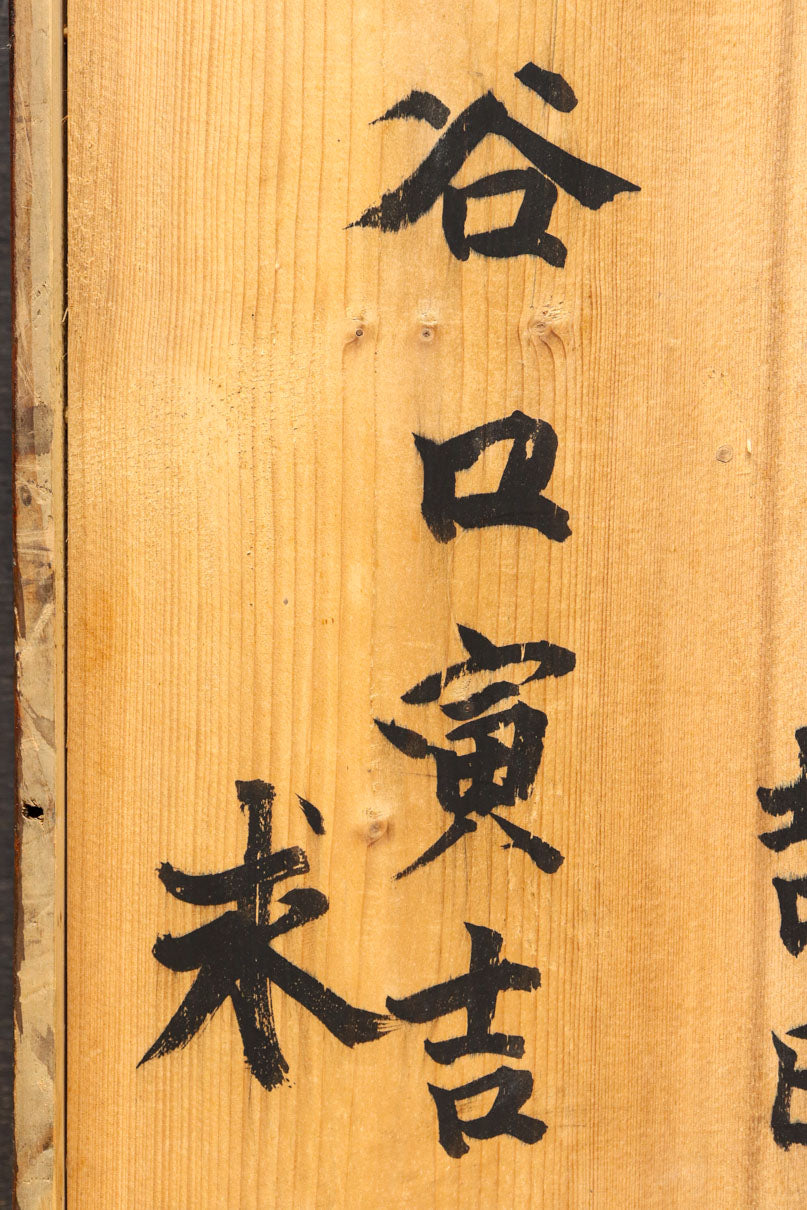 谷口寅吉
求